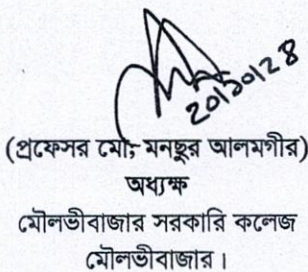 20/10/24
(প্রফেসর মোঃ মনছুর আলমগীর)
অধ্যক্ষ
মৌলভীবাজার সরকারি কলেজ
মৌলভীবাজার।